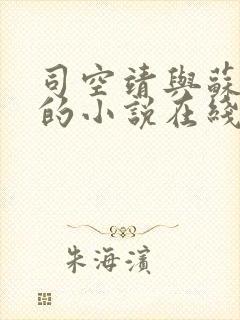 司空靖與蘇
的小説在綫
朱海濱